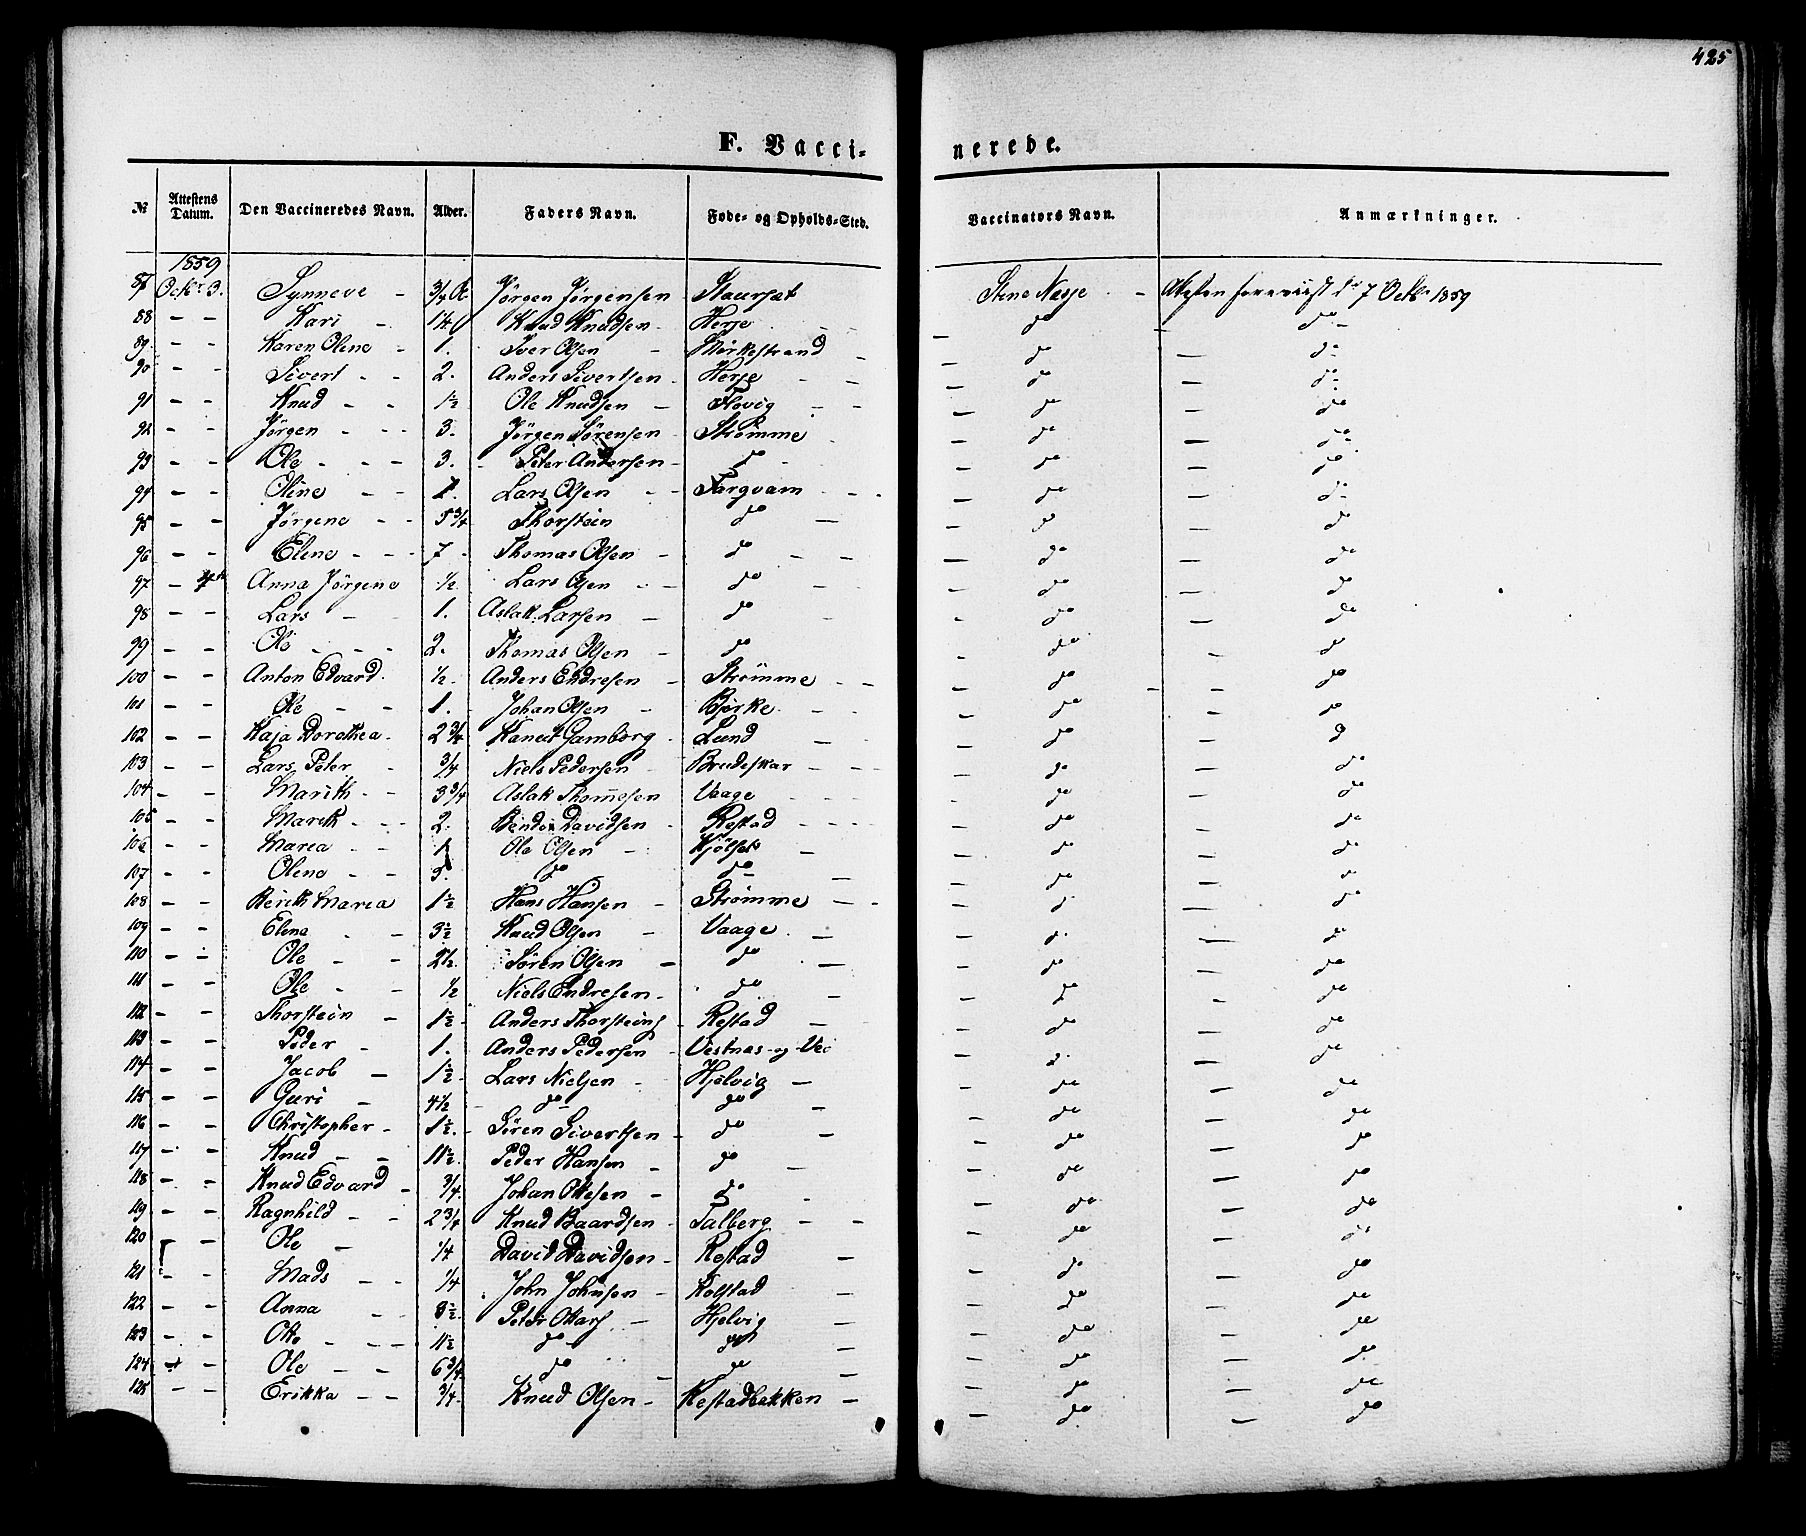 425
F. Vacci- nerede.
№ Attestens Datum. Den Vaccineredes Navn. Alder. Faders Navn. Føde- og Opholds-Sted. Vaccinators Navn. Anmærkninger.
1859
87 Octr 3. Synneve - 3/4 Jørgen Jørgensen - Staurset Stene Nesje - Attesten foreviist d. 7 Octbr 1859
88 - - Kari - 1 1/4 Knud Knudsen - Herje - - - do - do -
89. - - Karen Olene - 1. Iver Olsen - Mørkestrand - - do - do
90 - - Sivert - - 2. Anders Sivertsen - Herje - - - do - do
91 - - Knud - - 1½ Ole Knudsen - Flovig - - - do - do
92 - - Jørgen - - - 3. Jørgen Sørensen - Strømme - - do - do
93 - - Ole - - - 3. - Peter Andersen - do - - do - do
94 - - Oline - - 1. Lars Olsen - - Fargvam - - - - do - do
95 - - Jørgene - - 5 3/4 Thorstein do - - do - do
96 - - Elene - - - 7 - Thomas Olsen - do - - - do - do
97 - 4de Anna Jørgene ½ Lars Olsen - - do - - - do - do
98 - - Lars - 1. Aslak Larsen - do - - do - do
99 - - Ole - - - 2. Thomas Olsen - do - do - do
100 - - Anton Edvard. ½. Anders Endresen - Strömme - - - do - - do
101 - - Ole - - 1. - Johan Olsen - Bjørke - - - do - do
102 - - Kaja Dorothea - 2 3/4 Kanut Gamborg - Lund - - do - d
103 - - Lars Peter - 3/4 Niels Pedersen - Brudeskar - - - - do - do
104 - - Marith - - 3 3/4 Aslak Thomesen Vaage - - - - do - do
105 - - Marith - - - 2. Bendix Davidsen - Restad - - - - do - do
106 - - Maria - - 1 Ole Olsen - Kjölset - - do - do
107 - - Olena - - 5. do do - - do - do
108 - - Berith Maria 1½ Hans Hansen - Strømme - - - d. - do
109 - - Elena - - 3½ Knud Olsen - Vaage - - d. - do
110 - - Ole - - 2½. Søren Olsen - do - - do - do
111 - - Ole - - ½ Niels Endresen - do - - do - do
112 - - Thorstein - 1½ - Anders Thorsteins - Restad - - do - do
113 - - Peder - 1. Anders Pedersen - Vestnas-og-Vei - d. - do
114 - - Jacob - 1½ - Lars Nielsen - Hjelvig - - do - do
115 - - Guri - 4½ - do - do - - do - do
116 - - Christopher - 1½. - Sören Sivertsen - do - - do - do
117 - - Knud - - 11½. Peder Hansen - do - - do - do
118 - - Knud Edvard - 3/4. Johan Ottesen - do - - do - do
119 - - Ragnhild - - 2 3/4 Knud Baardsen - Talberg - - - do - do
120 - - Ole - 1/4 David Davidsen - Restad - - do - do
121 - - Mads - - 1/4 John Johnsen - Kolstad - - do - do
122 - - Anna - 3½. Peter Ottars - Hjelvig - - do - do
123 - - Otto - - - 11½ do - do - - do - do
124 - - Ole - - 6 3/4 do - do - - do - do
125 - - Erikka - - 3/4. Knud Olsen - Restadbakken - - do - do